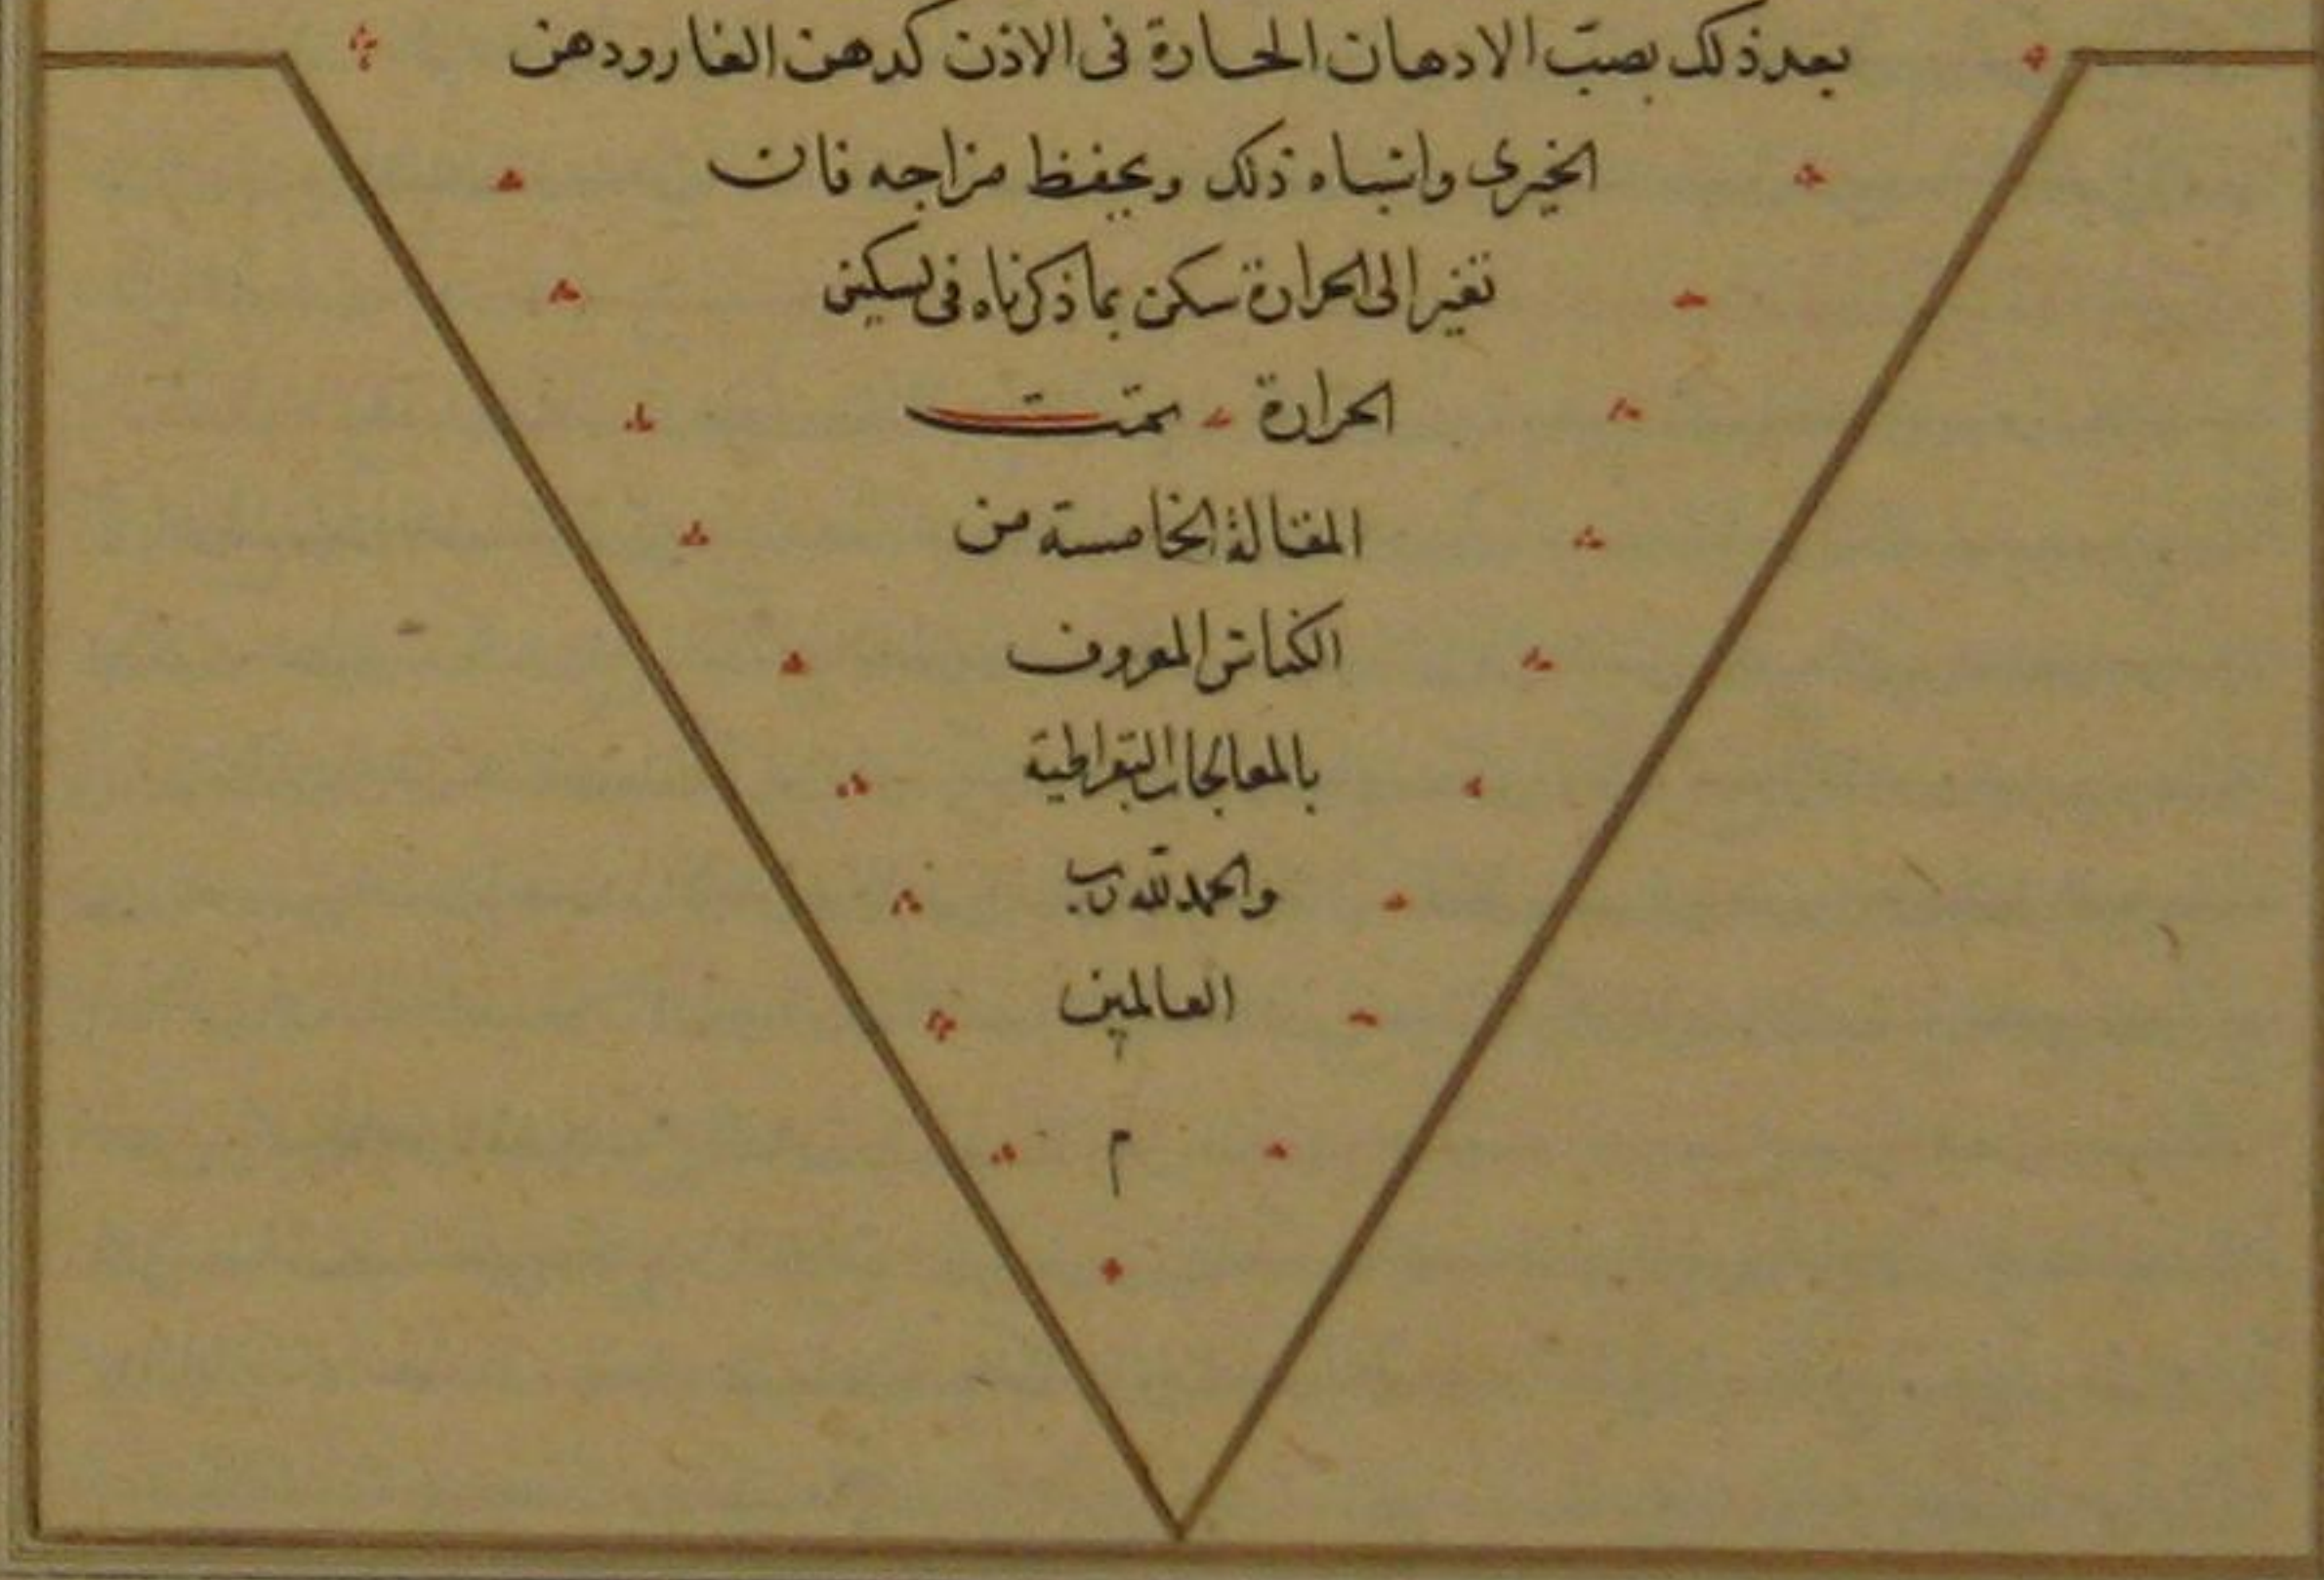 بعد ذلك بصب الادهان الحارة فى الاذن كدهن الغار ودهن
الخيرى واشباه ذلك ويحفظ مزاجه فان
تغير الى الحرارة سكن بما ذكرناه فى تسكين
الحرارة تمت
المقالة الخامسة من
الكناش المعروف
بالمعالجات البقراطية
والحمد لله رب
العالمين
م